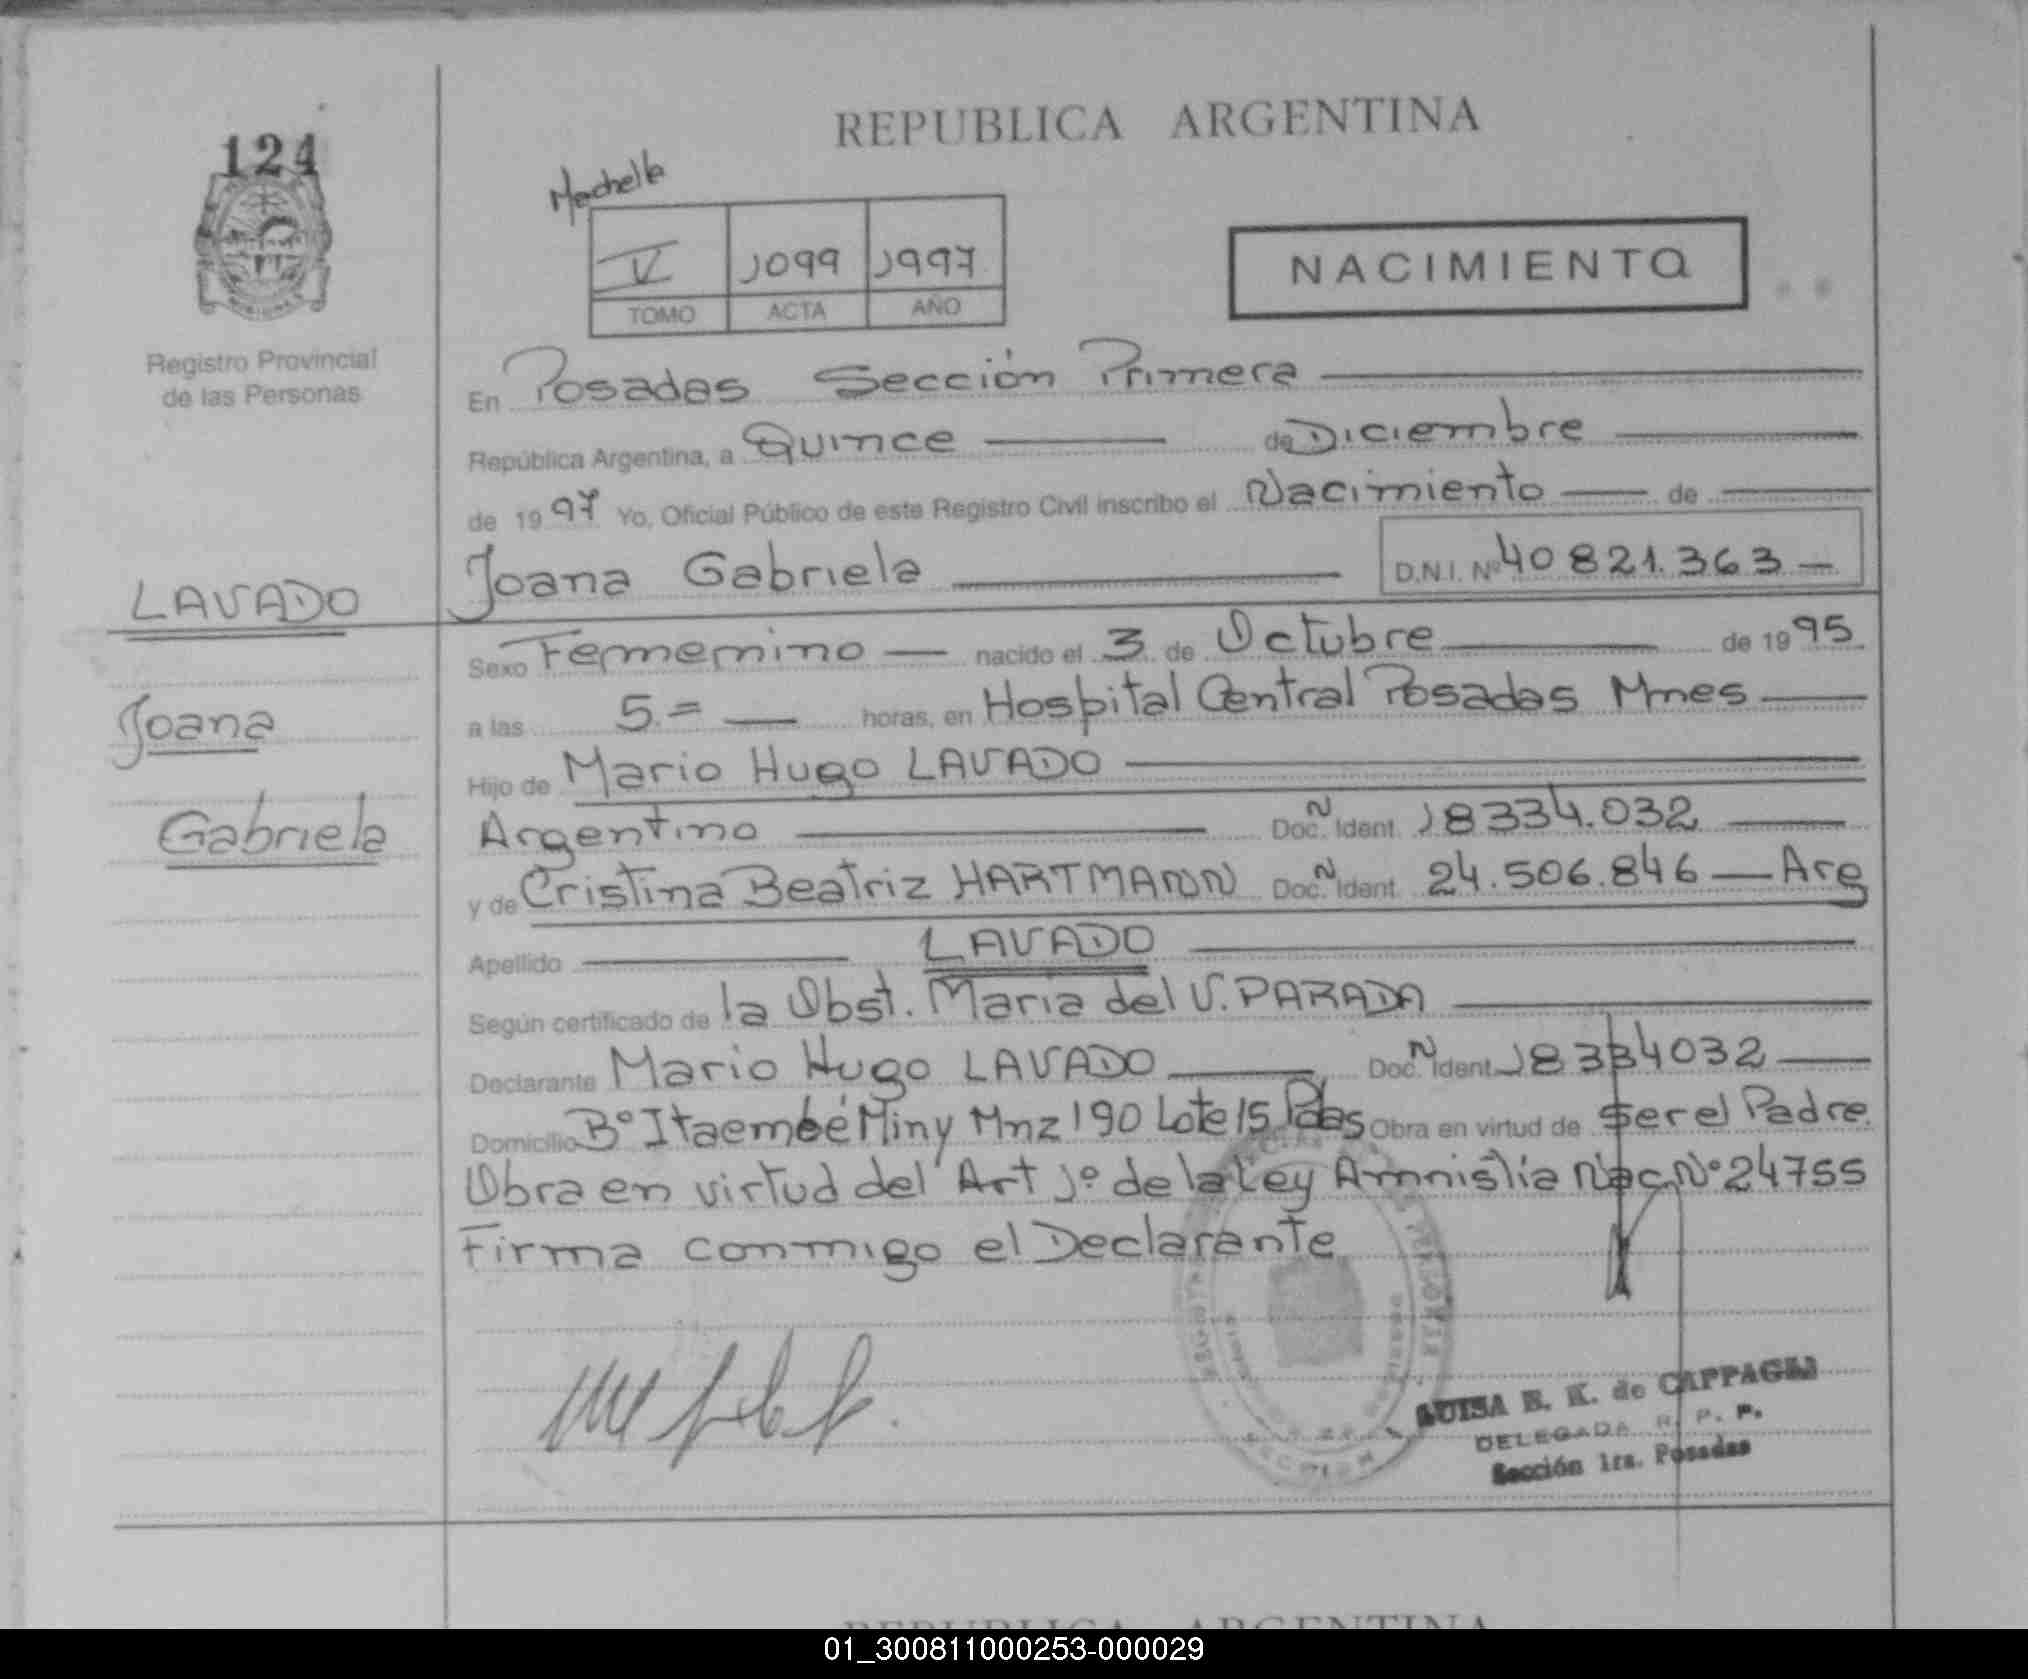 124
REPUBLICA ARGENTINA
V 1099 1997
TOMO ACTA AÑO
NACIMIENTO
Registro Provincial
de las Personas
LAVADO
Joana
Gabriela
En Posadas Sección Primera
República Argentina, a Quince de Diciembre
de 1997 Yo, Oficial Público de este Registro Civil inscribo el Nacimiento de
Joana Gabriela D.N.I. Nº 40 821.363
Sexo Femenino nacido el 3 de Octubre de 1995
a las 5.= horas, en Hospital Central Posadas Mnes
Hijo de Mario Hugo LAVADO
Argentino Doc. N Ident. 18334.032
y de Cristina Beatriz HARTMANN Doc. N Ident. 24.506.846 Arg
Apellido LAVADO
Según certificado de la Obst. Maria del V. PARADA
Declarante Mario Hugo LAVADO Doc. N Ident. 18334032
Domicilio Bº Itaembé Miny Mnz 190 Lote 15 Pdas Obra en virtud de Ser el Padre.
Obra en virtud del Art 1º de la Ley Amnistia Nac Nº 24755
Firma conmigo el Declarante
LUISA E. K. de CAPPAGLI
DELEGADA R. P. P.
Sección 1ra. Posadas
REPUBLICA ARGENTINA
01_300811000253-000029